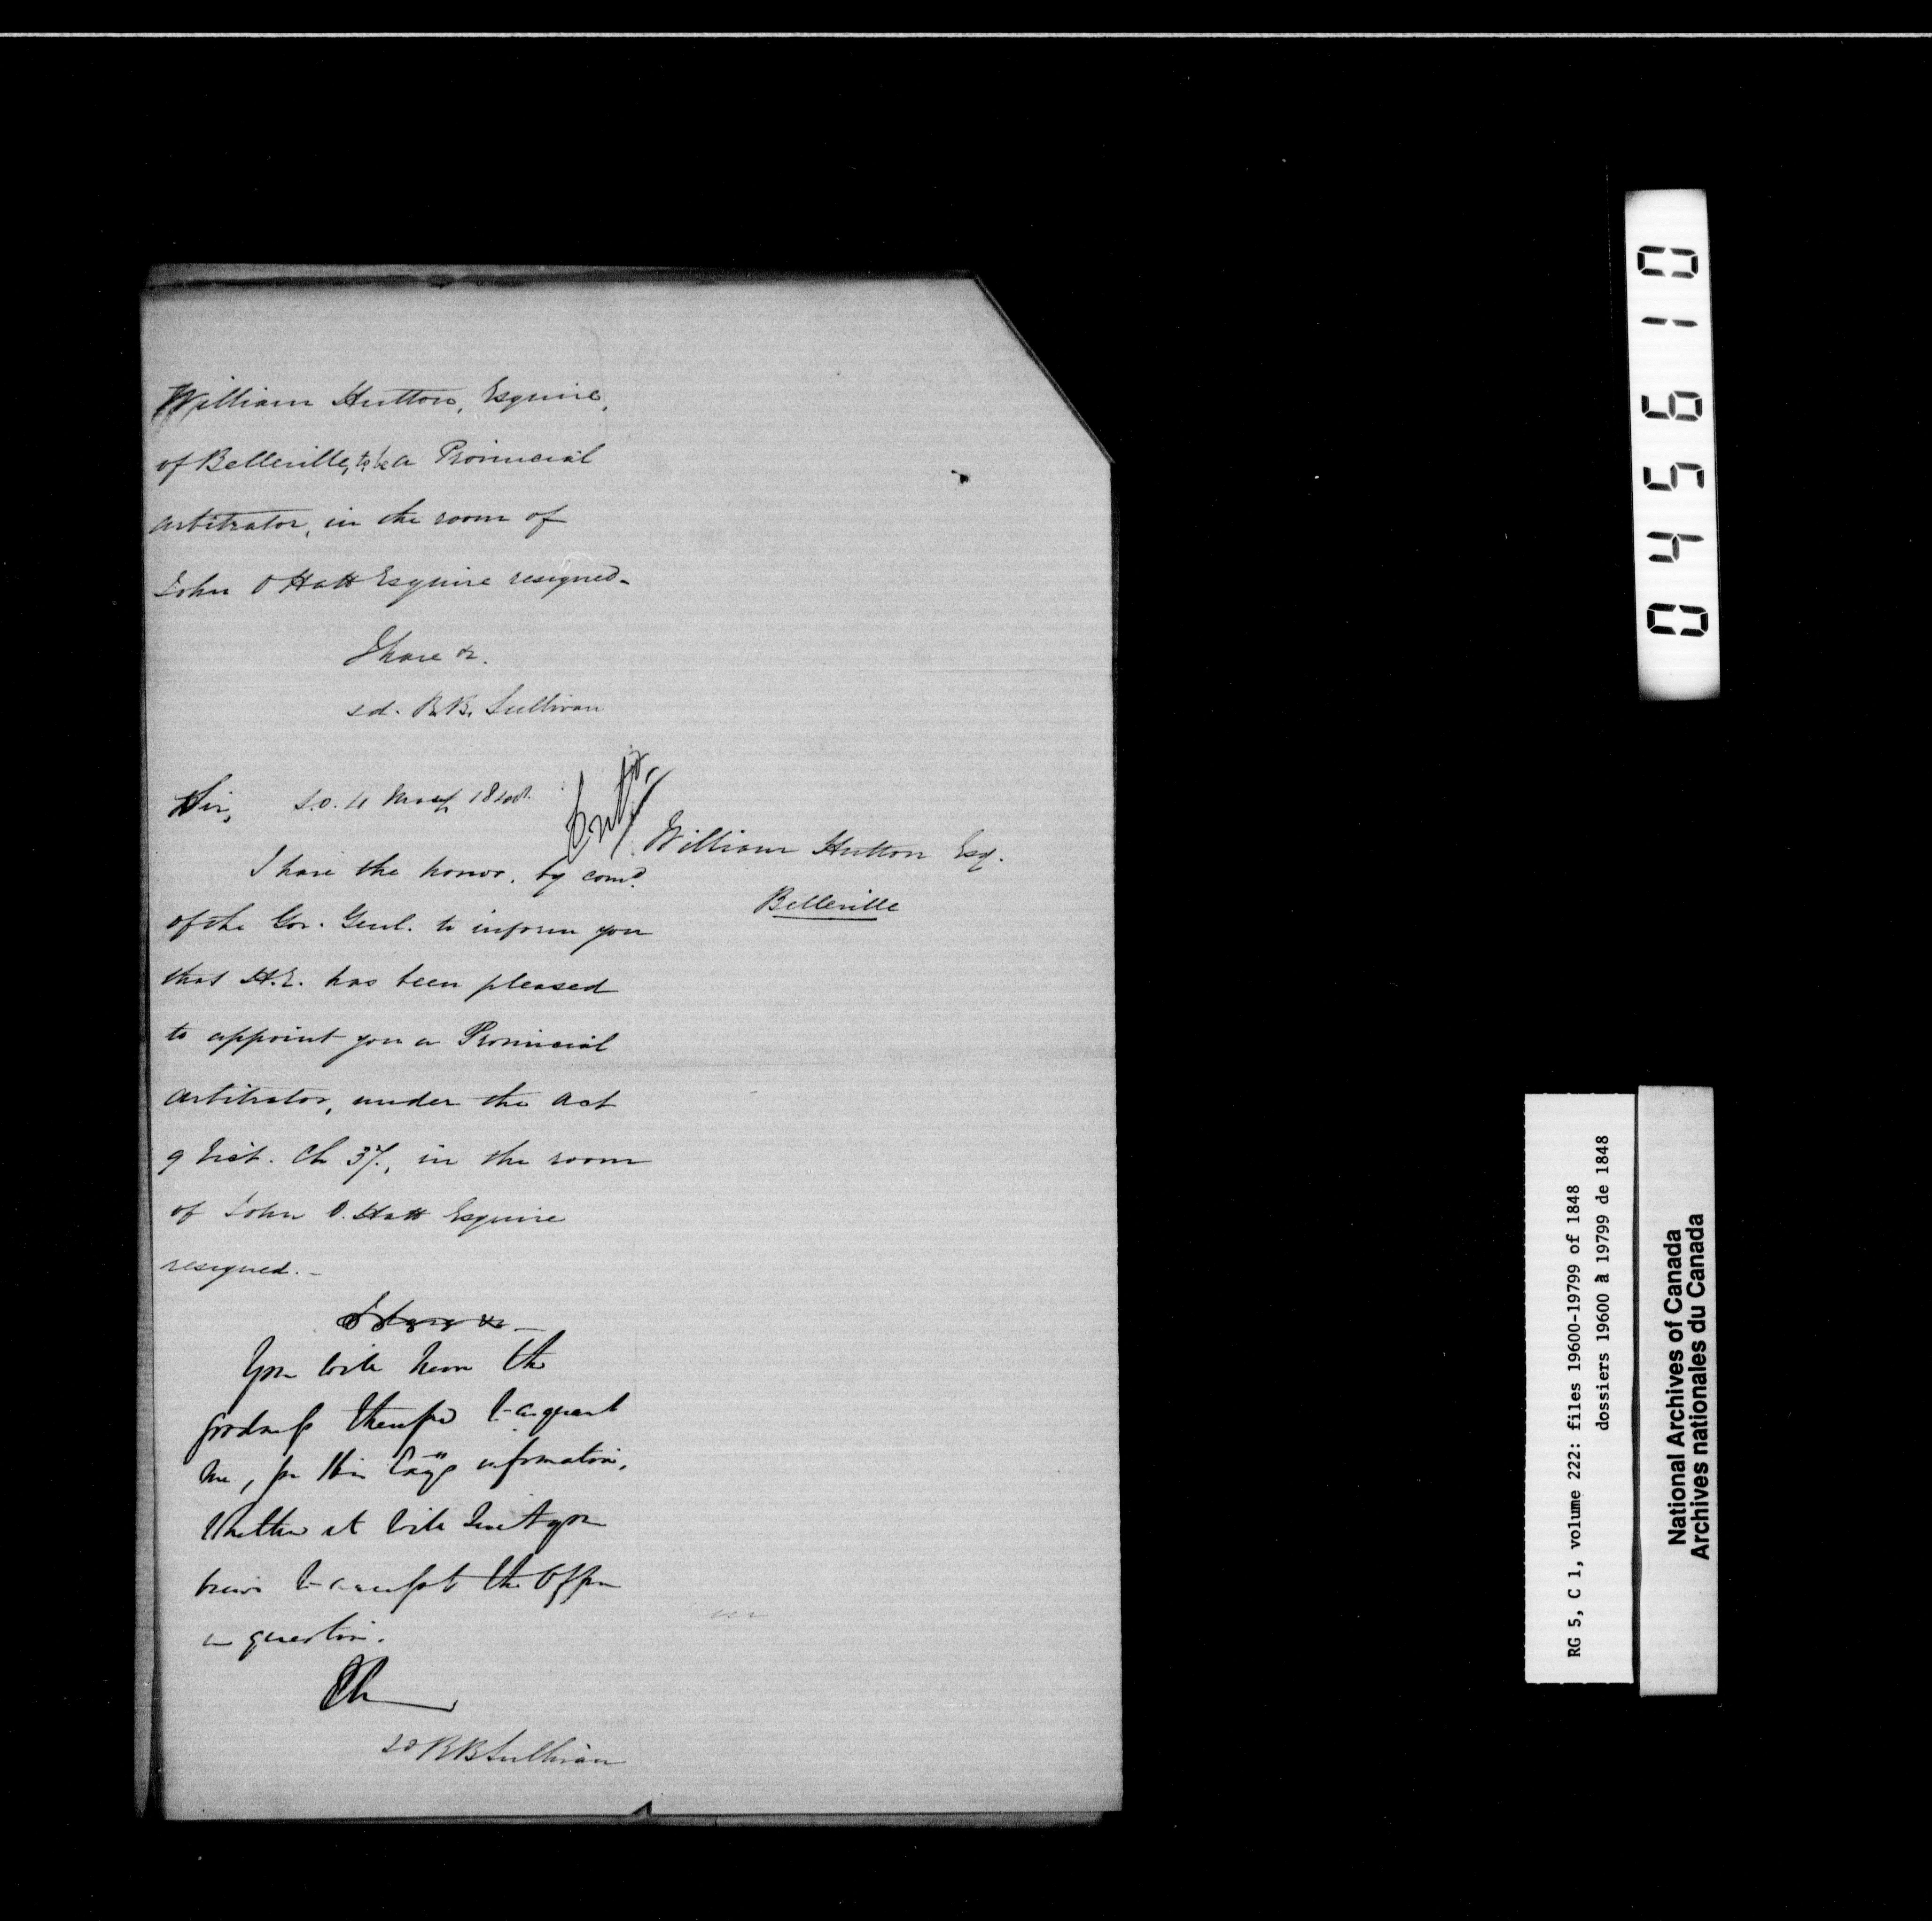 William Hutton, Esquire,
of Belleville, to be a Provincial
Arbitrator, in the room of
John O Hatt Esquire resigned.
I have &c.
sd. R.B. Sullivan
Sir, S.O. 11 May 1848.
Entd.
William Hutton Esq.
Belleville
I have the honor, by comd.
of the Gov. Genl. to inform you
that H.E. has been pleased
to appoint you a Provincial
Arbitrator, under the Act
9 Vict. Ch 37., in the room
of John O. Hatt Esquire
resigned. –
I have &c –
You will have the
goodness therefore to acquaint
me, for His Excys information,
Whether it will suit your
views to accept the Office
in question.
I h
sd R B Sullivan
045610
RG 5, C 1, volume 222: files 19600-19799 of 1848
dossiers 19600 à 19799 de 1848
National Archives of Canada
Archives nationales du Canada